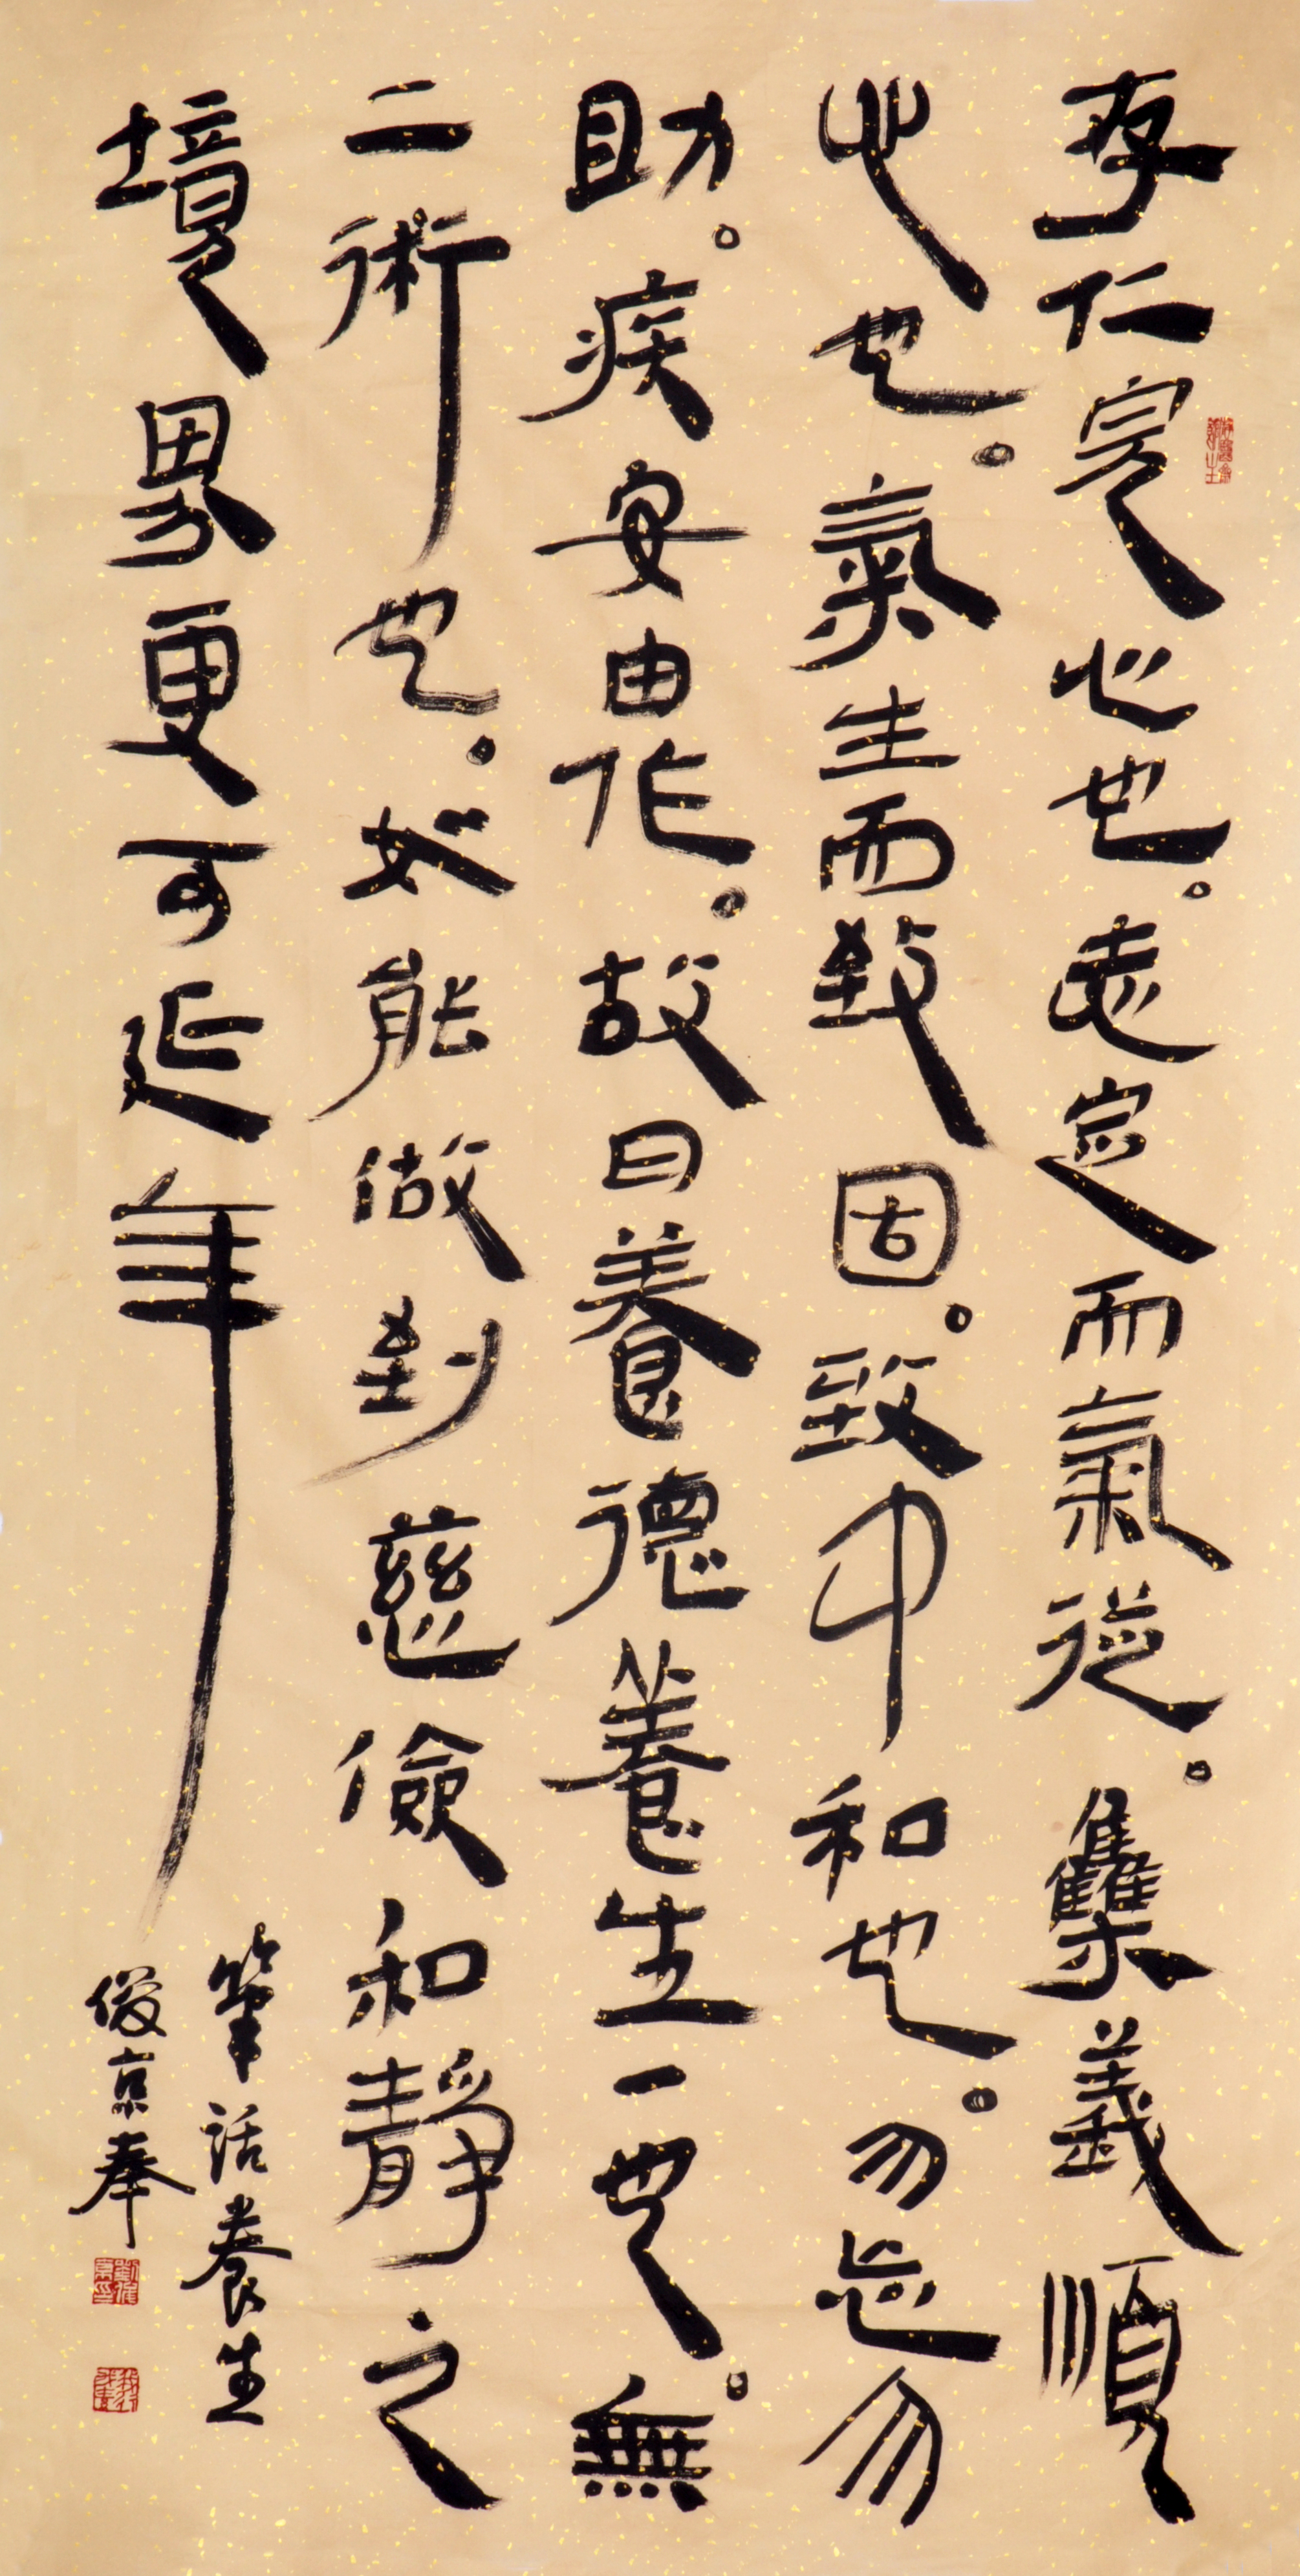 存仁完心也。志定而氣從。雧義順
心也。氣生而致固。致中和也。勿忘勿
助。疾安由作。故曰養德養生一也。無
二術也。如能做到慈儉和靜之
境界更可延年
筆話養生
俊京奉